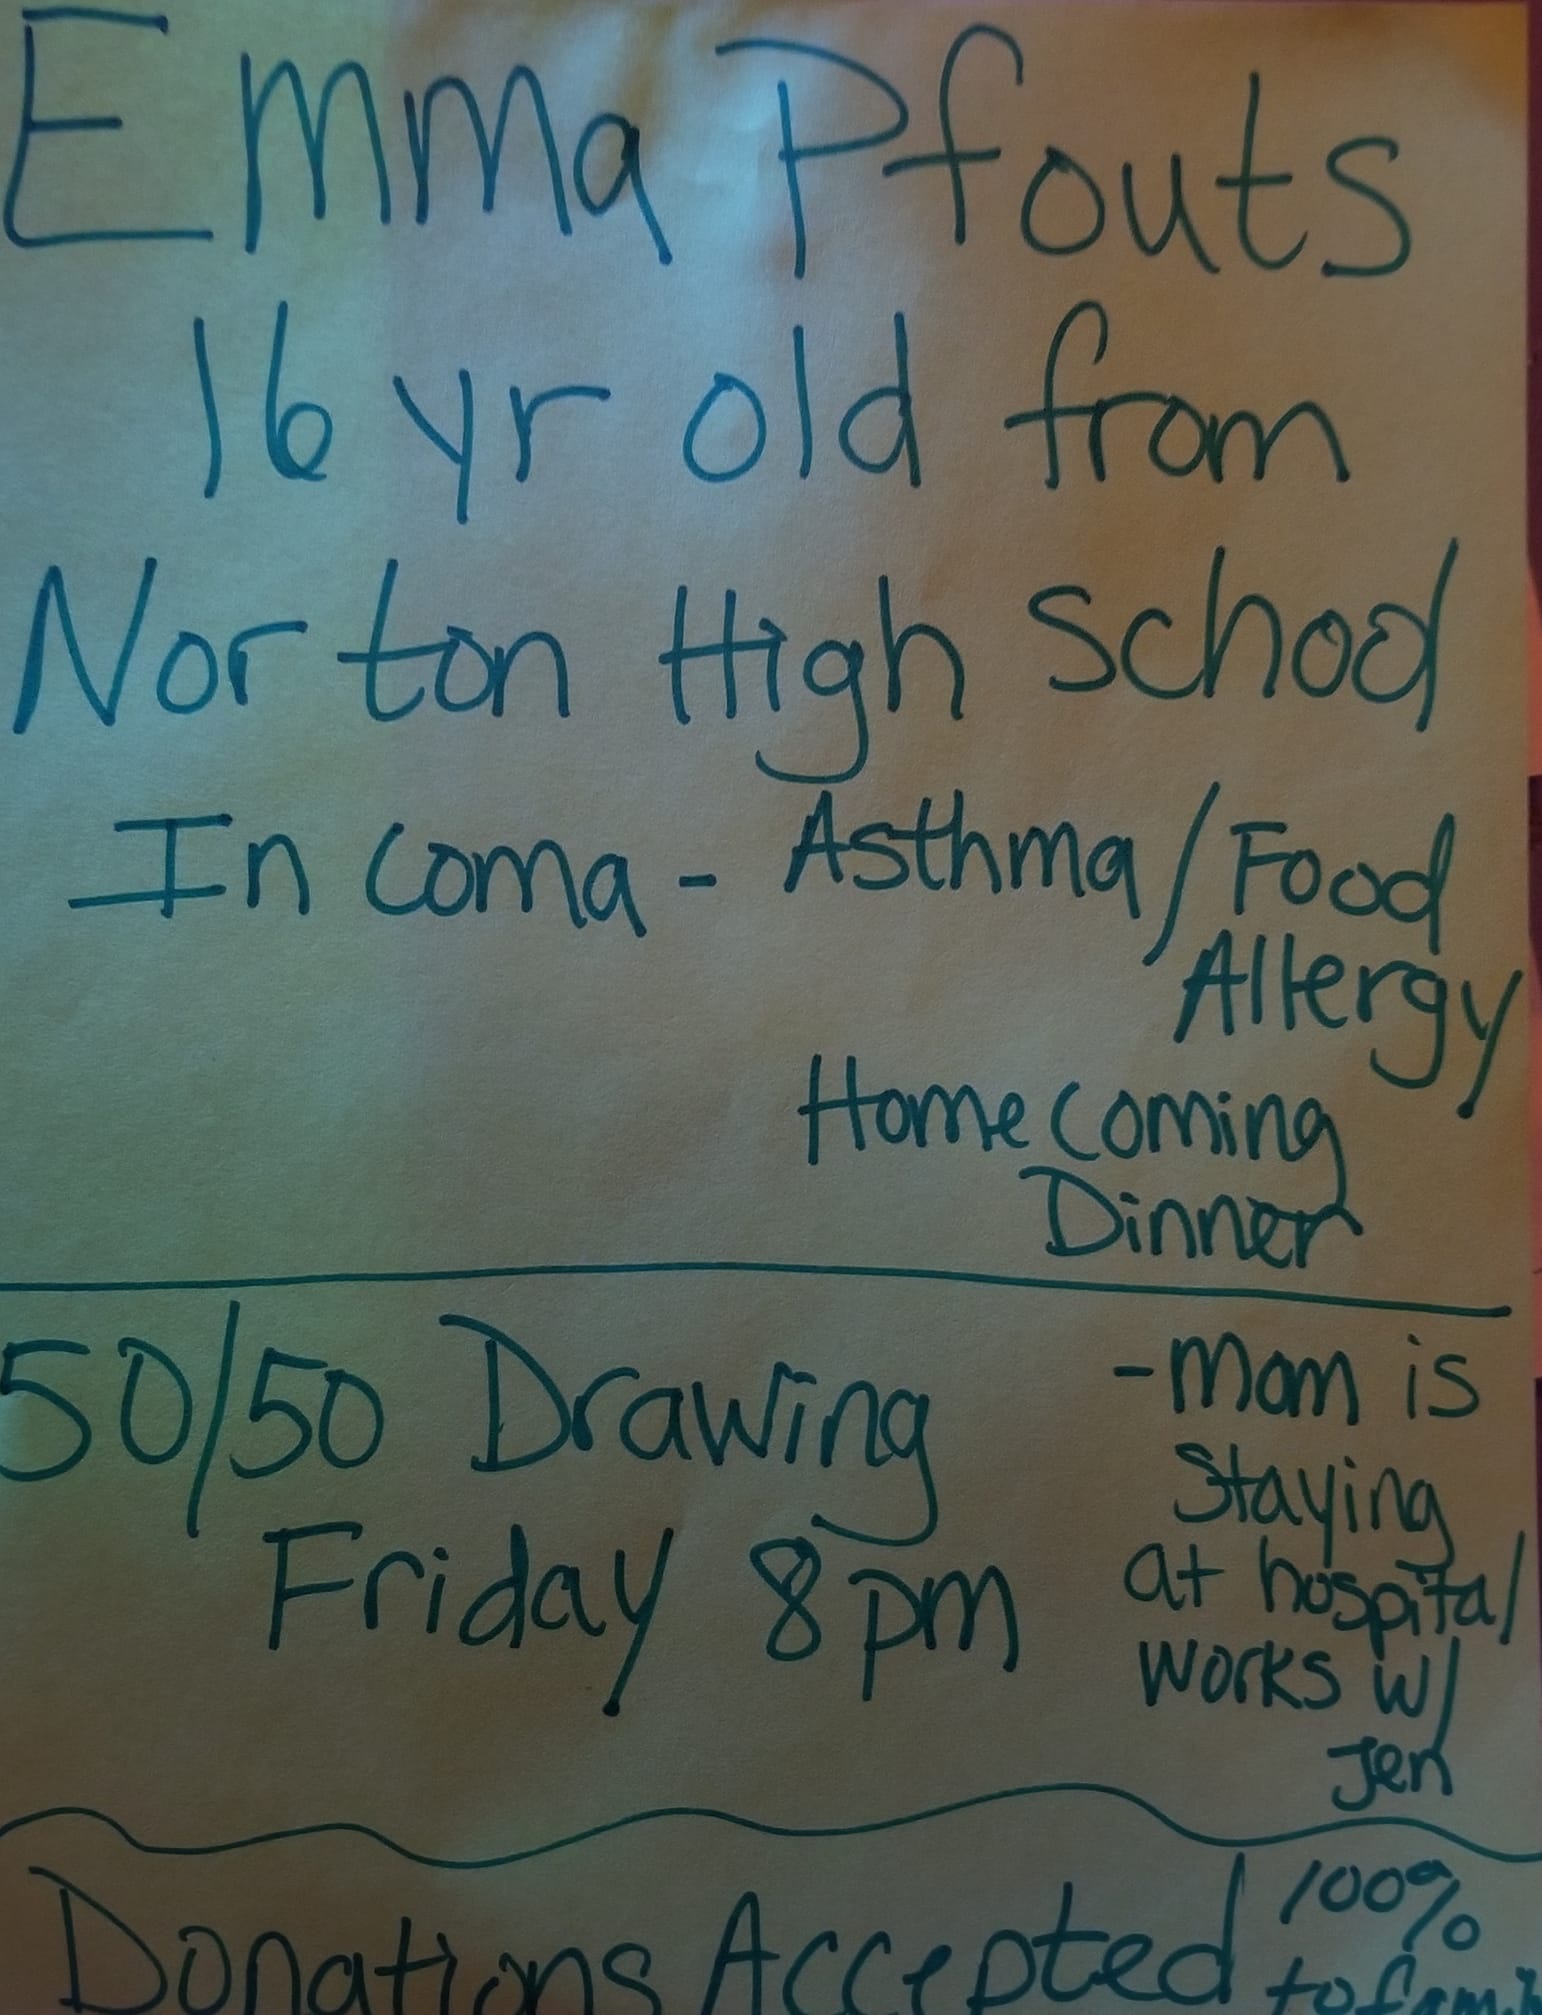 Emma Pfouts
16 yr old from
Norton High School
In Coma - Asthma/Food
Allergy
Homecoming
Dinner
50/50 Drawing
Friday 8pm
-Mom is
Staying
at hospital
works w/
Jen
Donations Accepted
100%
to